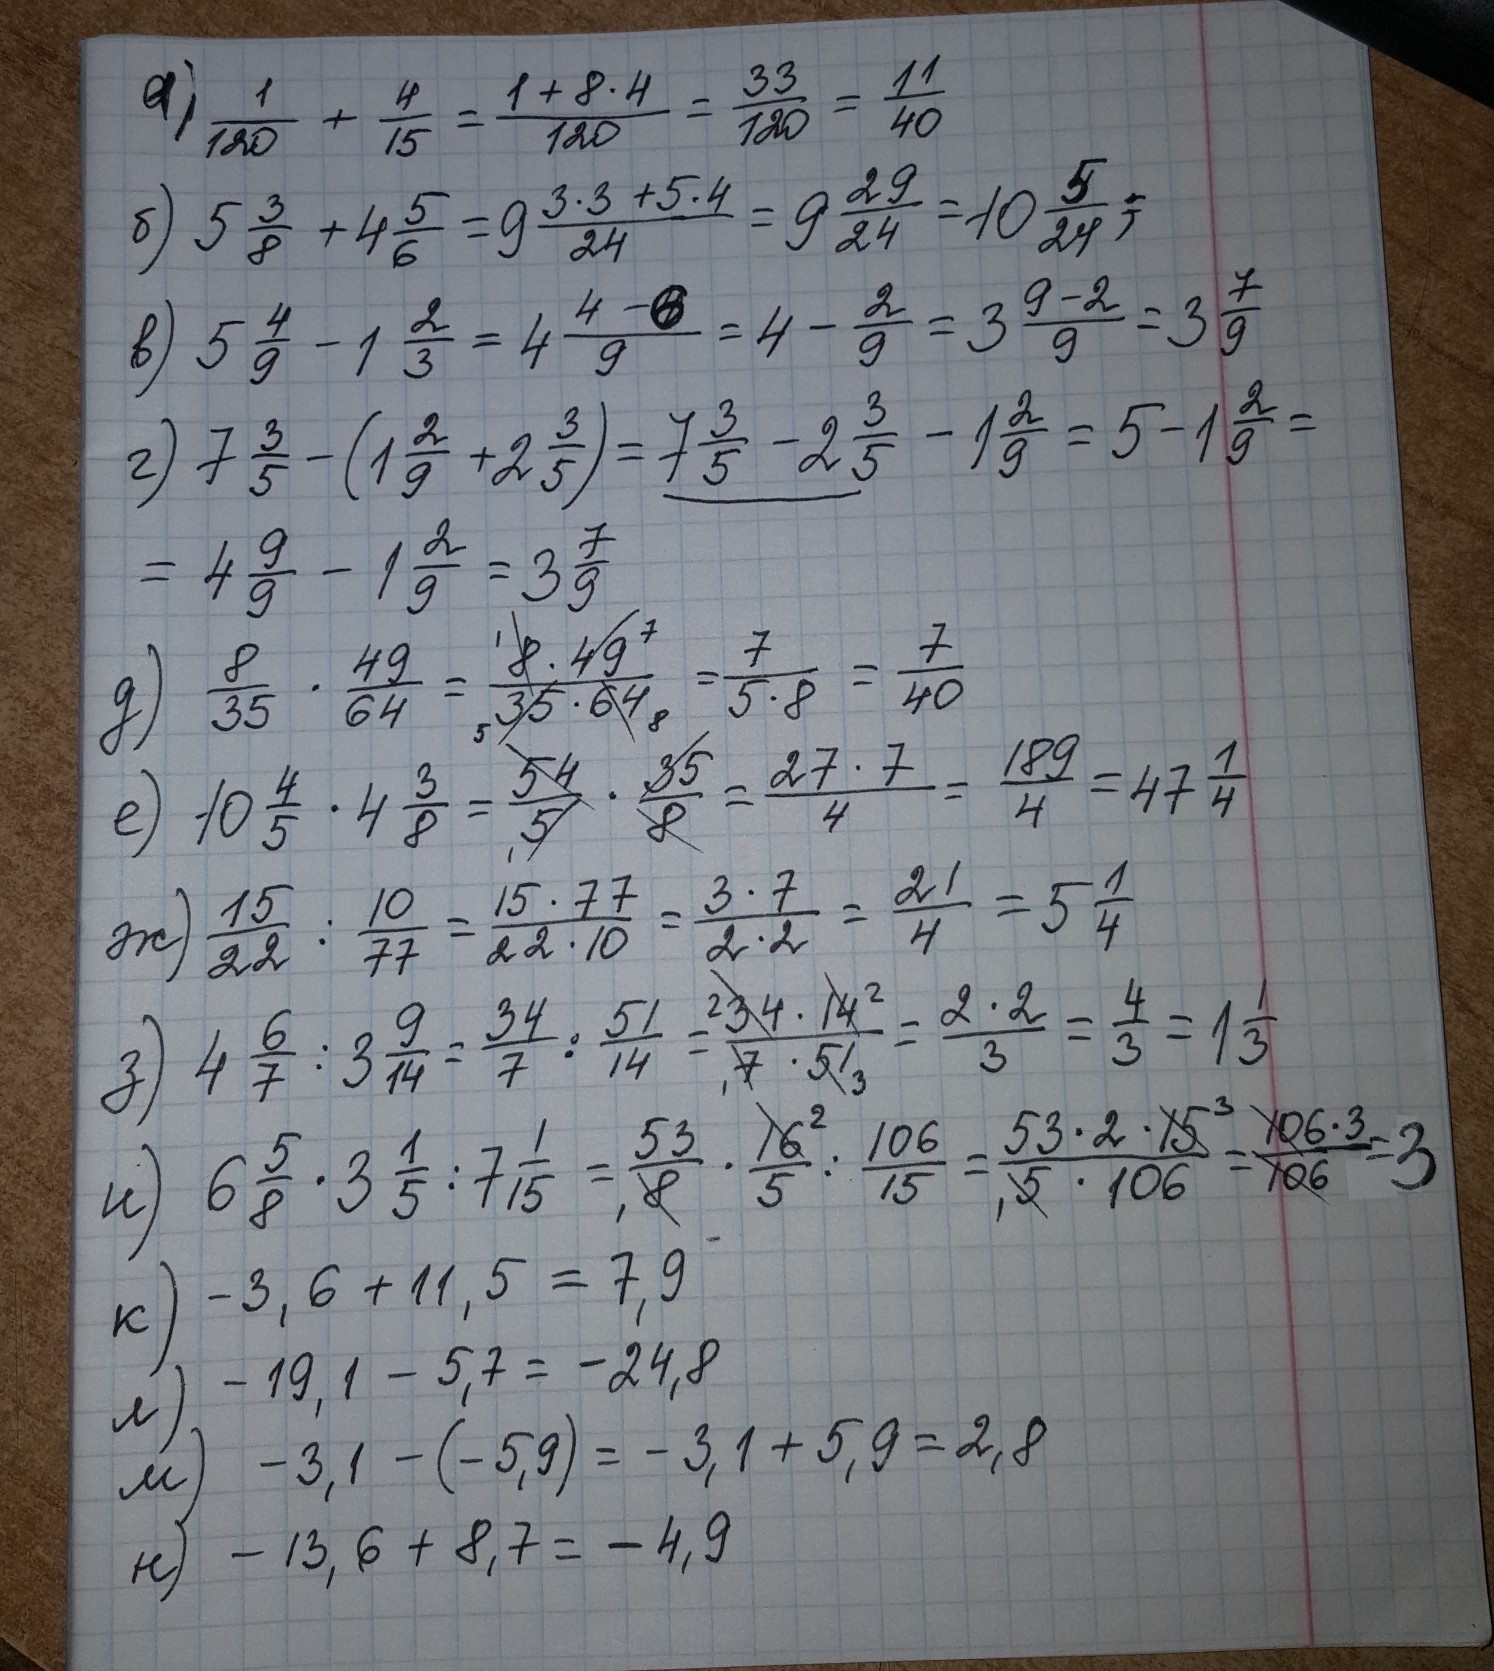 а) 1/120 + 4/15 = (1 + 8·4)/120 = 33/120 = 11/40
б) 5 3/8 + 4 5/6 = 9 (3·3 + 5·4)/24 = 9 29/24 = 10 5/24;
в) 5 4/9 − 1 2/3 = 4 (4 − 6)/9 = 4 − 2/9 = 3 (9 − 2)/9 = 3 7/9
г) 7 3/5 − (1 2/9 + 2 3/5) = 7 3/5 − 2 3/5 − 1 2/9 = 5 − 1 2/9 =
= 4 9/9 − 1 2/9 = 3 7/9
д) 8/35 · 49/64 = (¹8 · 49⁷)/(₅35 · 64₈) = 7/(5·8) = 7/40
е) 10 4/5 · 4 3/8 = 54/₁5 · 35/8 = (27 · 7)/4 = 189/4 = 47 1/4
ж) 15/22 : 10/77 = (15 · 77)/(22 · 10) = (3 · 7)/(2 · 2) = 21/4 = 5 1/4
з) 4 6/7 : 3 9/14 = 34/7 : 51/14 = (²34 · 14²)/(₁7 · 51₃) = (2 · 2)/3 = 4/3 = 1 1/3
и) 6 5/8 · 3 1/5 : 7 1/15 = 53/₁8 · 16²/5 : 106/15 = (53 · 2 · 15³)/(₁5 · 106) = (106·3)/106 = 3
к) −3,6 + 11,5 = 7,9
л) −19,1 − 5,7 = −24,8
м) −3,1 − (−5,9) = −3,1 + 5,9 = 2,8
н) −13,6 + 8,7 = −4,9